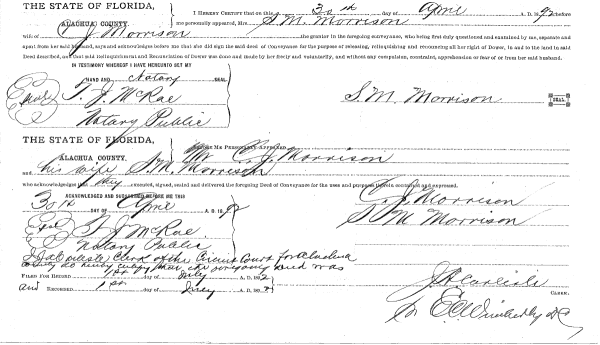 THE STATE OF FLORIDA,
ALACHUA COUNTY.
I HEREBY CERTIFY that on this 30th day of April A. D. 18 before
me personally appeared, Mrs S. M. Morrison
wife of C J Morrison the grantor in the foregoing conveyance, who being first duly questioned and examined by me, separate and
apart from her said husband, says and acknowledges before me that she did sign the said deed of Conveyance for the purpose of releasing, relinquishing and renouncing all her right of Dower, in and to the land in said
Deed described, and that said Relinquishment and Renunciation of Dower was done and made by her freely and voluntarily, and without any compulsion, constraint, apprehension or fear of or from her said husband.
IN TESTIMONY WHEREOF I HAVE HEREUNTO SET MY
HAND AND Notary SEAL
T. J. McRae
Notary Public
S. M. Morrison SEAL
THE STATE OF FLORIDA,
ALACHUA COUNTY.
BEFORE ME PERSONALLY APPEARED Mr C. J. Morrison
and his wife S. M. Morrison
who acknowledges that they executed, signed, sealed and delivered the foregoing Deed of Conveyance for the uses and purposes therein contained and expressed.
ACKNOWLEDGED AND SUBSCRIBED BEFORE ME THIS
30th DAY OF April A. D. 18
C. J. Morrison
S M Morrison
T J McRae
Notary Public
Clerk of the Circuit Court for Alachua
County do hereby certify that the was
FILED FOR RECORD 1st day of July A. D. 18
and RECORDED 1st day of July A. D. 18
J A Carlisle
CLERK.
E C Wimberly DC